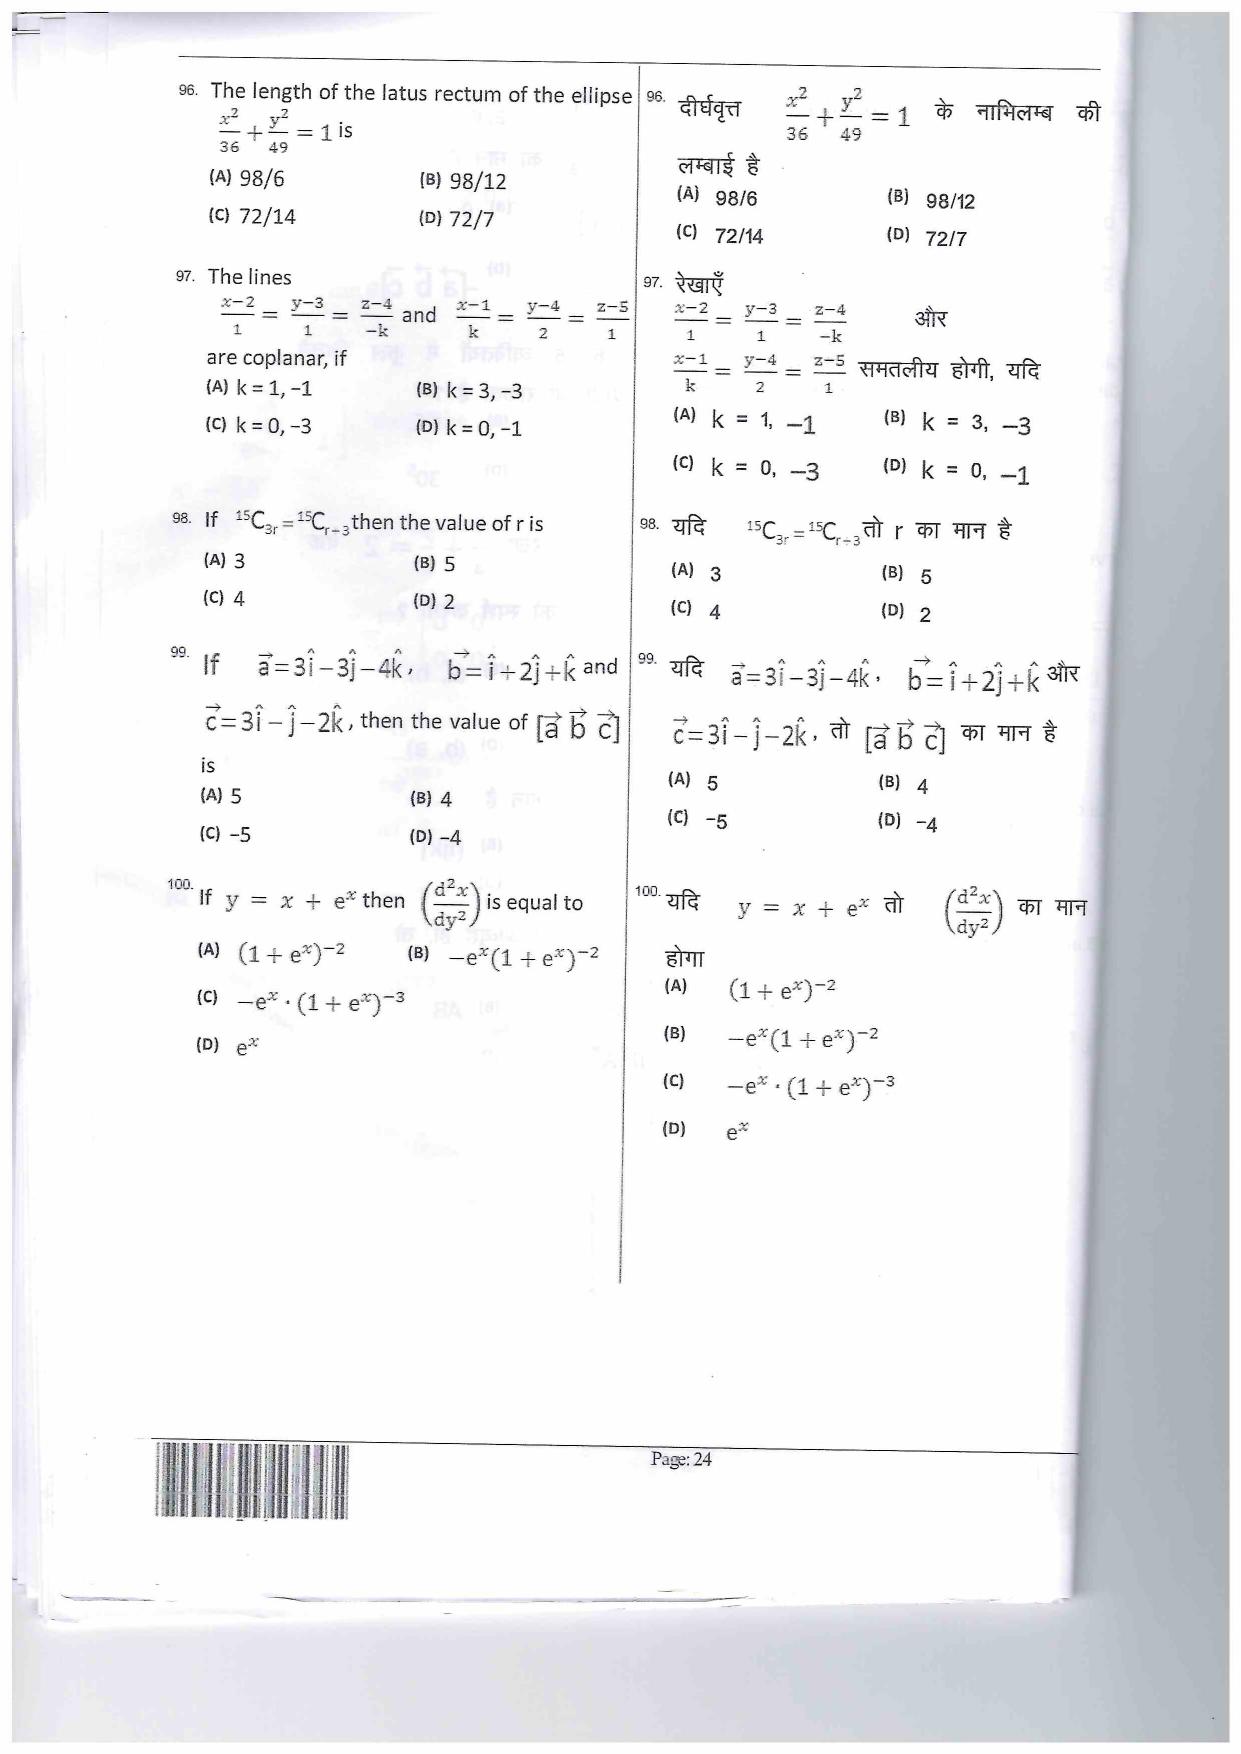 96. The length of the latus rectum of the ellipse
x²/36 + y²/49 = 1 is
(A) 98/6 (B) 98/12
(C) 72/14 (D) 72/7
97. The lines
x−2/1 = y−3/1 = z−4/−k and x−1/k = y−4/2 = z−5/1
are coplanar, if
(A) k = 1, −1 (B) k = 3, −3
(C) k = 0, −3 (D) k = 0, −1
98. If ¹⁵C₃ᵣ = ¹⁵Cᵣ₊₃ then the value of r is
(A) 3 (B) 5
(C) 4 (D) 2
99. If a⃗ = 3î − 3ĵ − 4k̂, b⃗ = î + 2ĵ + k̂ and
c⃗ = 3î − ĵ − 2k̂, then the value of [a⃗ b⃗ c⃗]
is
(A) 5 (B) 4
(C) −5 (D) −4
100. If y = x + eˣ then (d²x/dy²) is equal to
(A) (1 + eˣ)⁻² (B) −eˣ(1 + eˣ)⁻²
(C) −eˣ · (1 + eˣ)⁻³
(D) eˣ
96. दीर्घवृत्त x²/36 + y²/49 = 1 के नाभिलम्ब की
लम्बाई है
(A) 98/6 (B) 98/12
(C) 72/14 (D) 72/7
97. रेखाएँ
x−2/1 = y−3/1 = z−4/−k और
x−1/k = y−4/2 = z−5/1 समतलीय होगी, यदि
(A) k = 1, −1 (B) k = 3, −3
(C) k = 0, −3 (D) k = 0, −1
98. यदि ¹⁵C₃ᵣ = ¹⁵Cᵣ₊₃ तो r का मान है
(A) 3 (B) 5
(C) 4 (D) 2
99. यदि a⃗ = 3î − 3ĵ − 4k̂, b⃗ = î + 2ĵ + k̂ और
c⃗ = 3î − ĵ − 2k̂, तो [a⃗ b⃗ c⃗] का मान है
(A) 5 (B) 4
(C) −5 (D) −4
100. यदि y = x + eˣ तो (d²x/dy²) का मान
होगा
(A) (1 + eˣ)⁻²
(B) −eˣ(1 + eˣ)⁻²
(C) −eˣ · (1 + eˣ)⁻³
(D) eˣ
Page: 24